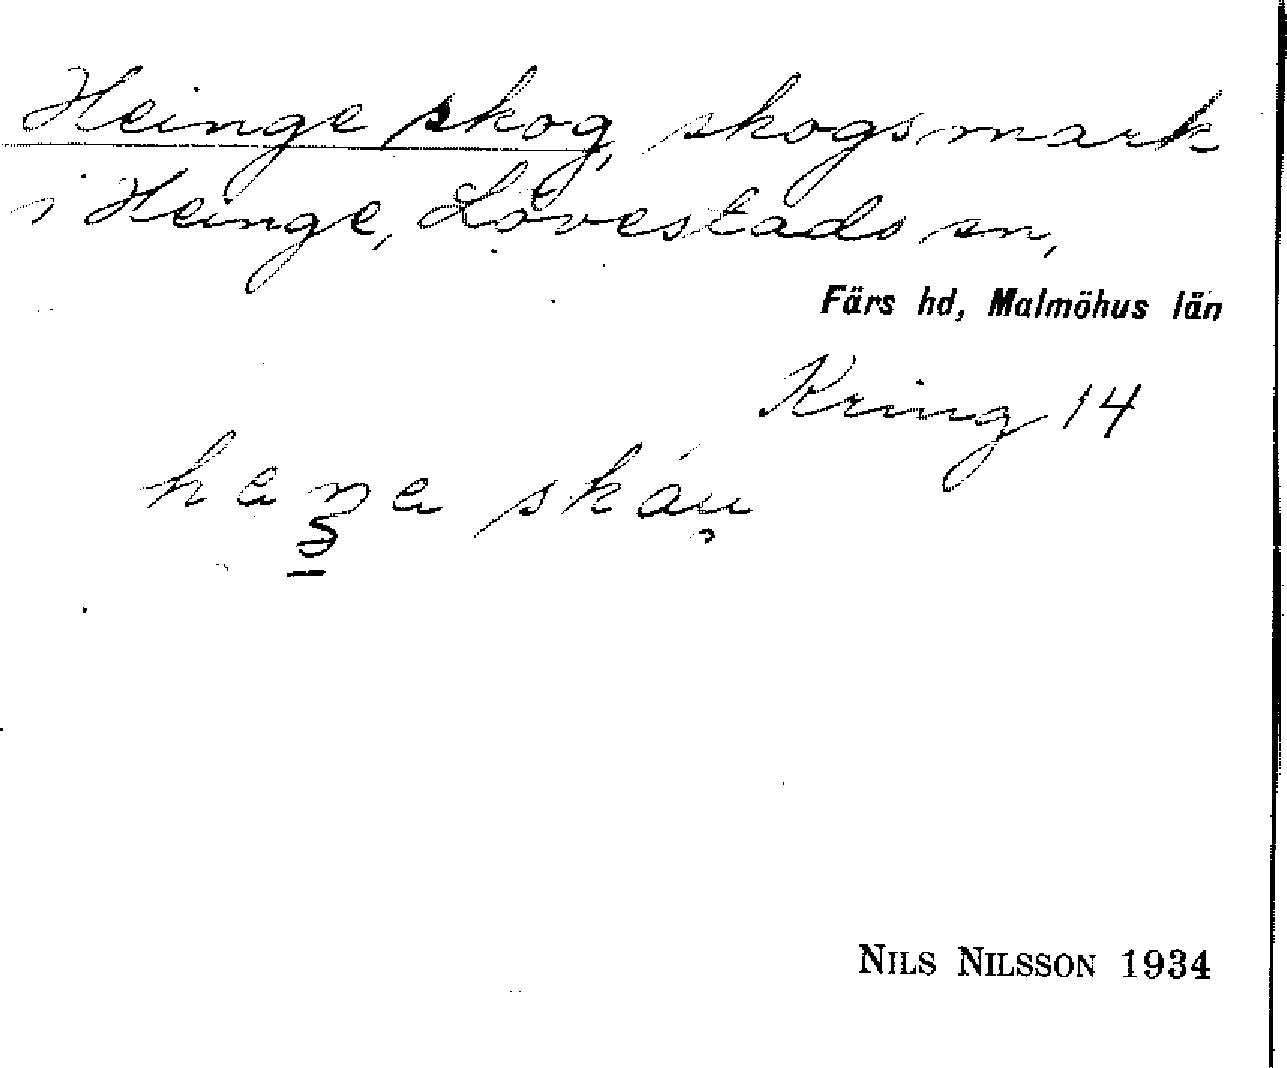 Heinge skog, skogsmark
i Heinge, Lövestads sn,
Färs hd, Malmöhus län
Kring 14
NILS NILSSON 1934